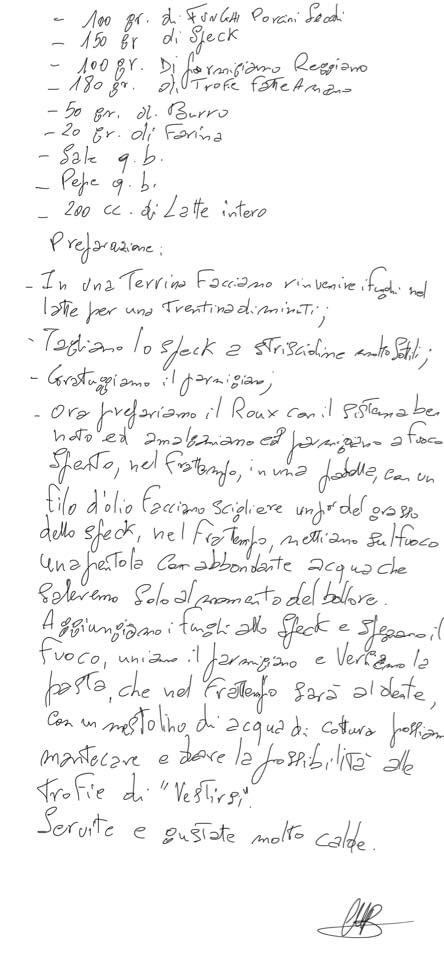 - 100 gr. di FUNGHI Porcini Secchi
- 150 gr di Speck
- 100 gr. Di Parmigiano Reggiano
- 180 gr. di Trofie fatte A mano
- 50 gr. di Burro
- 20 gr. di Farina
- Sale q.b.
- Pepe q.b.
- 200 cc. di Latte intero
Preparazione:
- In una Terrina Facciamo rinvenire i funghi nel
latte per una Trentina di minuti;
- Tagliamo lo speck a striscioline molto sottili;
- Grattuggiamo il parmigiano;
- Ora prepariamo il Roux con il sistema ben
noto ed amalgamiamo il parmigiano a fuoco
spento, nel frattempo, in una padella, con un
filo d'olio facciamo sciogliere un po' del grasso
dello speck, nel frattempo, mettiamo sul fuoco
una pentola con abbondante acqua che
saleremo solo al momento del bollore.
Aggiungiamo i funghi allo speck e spegniamo il
fuoco, uniamo il parmigiano e Versiamo la
pasta, che nel frattempo sarà al dente,
con un mestolino di acqua di cottura possiamo
mantecare e dare la possibilità alle
trofie di "Vestirsi".
Servite e gustate molto calde.